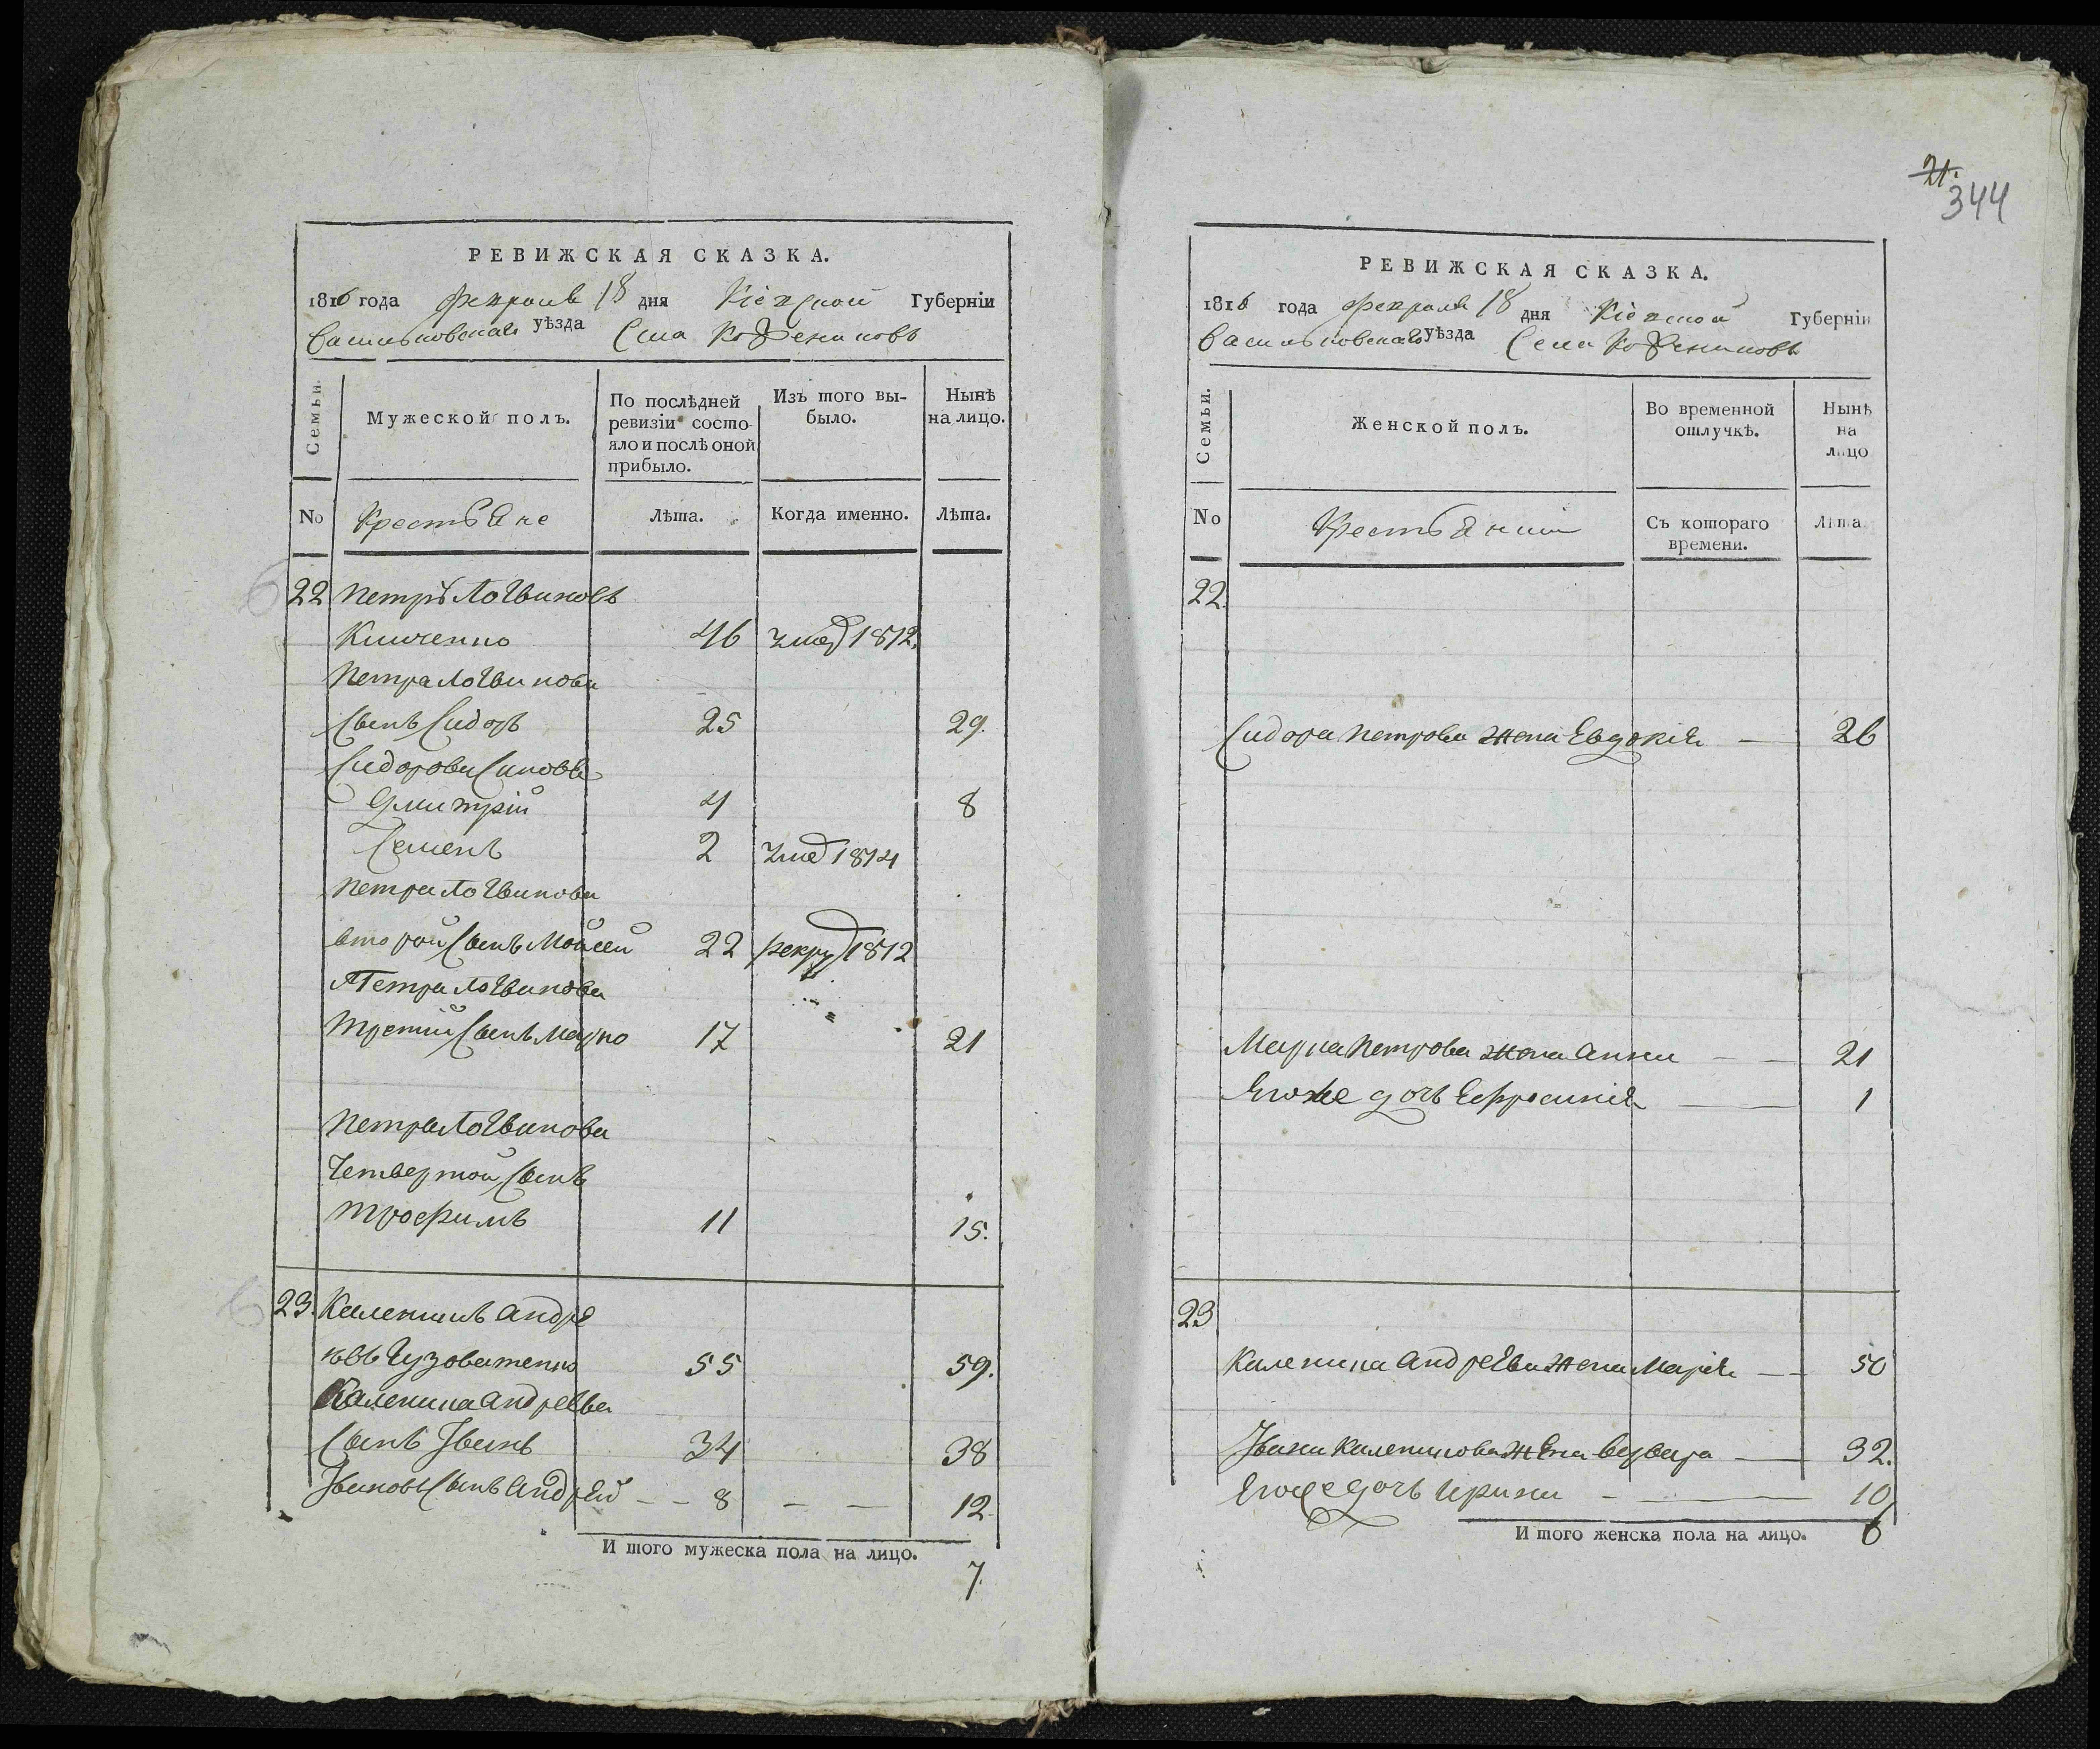 РЕВИЖСКАЯ СКАЗКА.
1816 года февраля 18 дня Кіевской Губерніи
Васильковскаго уѣзда Села Кожениковъ
Семьи.
Мужеской полъ.
По послѣдней ревизіи состояло и послѣ оной прибыло.
Изъ того выбыло.
Нынѣ на лицо.
No
Крестьяне
Лѣта.
Когда именно.
Лѣта.
22 Петръ Логвиновъ
Климченко 46 умер 1812.
Петра Логвинова
Сынъ Сидоръ 25 29.
Сидорови Синовья
Дмитрій 4 8
Семенъ 2 умер 1814
Петра Логвинова
второй Сынъ Мойсей 22 рекру 1812
Петра Логвинова
Третій Сынъ Марко 17 21
Петра Логвинова
Четвертой Сынъ
Трофимъ 11 15.
23. Каленикъ Андре
евъ 55 59.
Каленика Андреева
Сынъ Іванъ 34 38
Івановъ Сынъ Андрей 8 12.
И того мужеска пола на лицо.
7.
21.
344
РЕВИЖСКАЯ СКАЗКА.
1816 года февраля 18 дня Кіевской Губерніи
Васильковскаго уѣзда Села Кожениковъ
Семьи.
Женской полъ.
Во временной отлучкѣ.
Нынѣ на лицо
No
Крестьянки
Съ котораго времени.
Лѣта
22.
Сидора Петрова жена Евдокія 26
Марка Петрова жена Анна 21
Егоже дочь Ефросинія 1
23
Каленика Андреева жена Марія 50
Івана Каленикова жена Варвара 32.
Егоже дочь Ирина 10
И того женска пола на лицо. 6